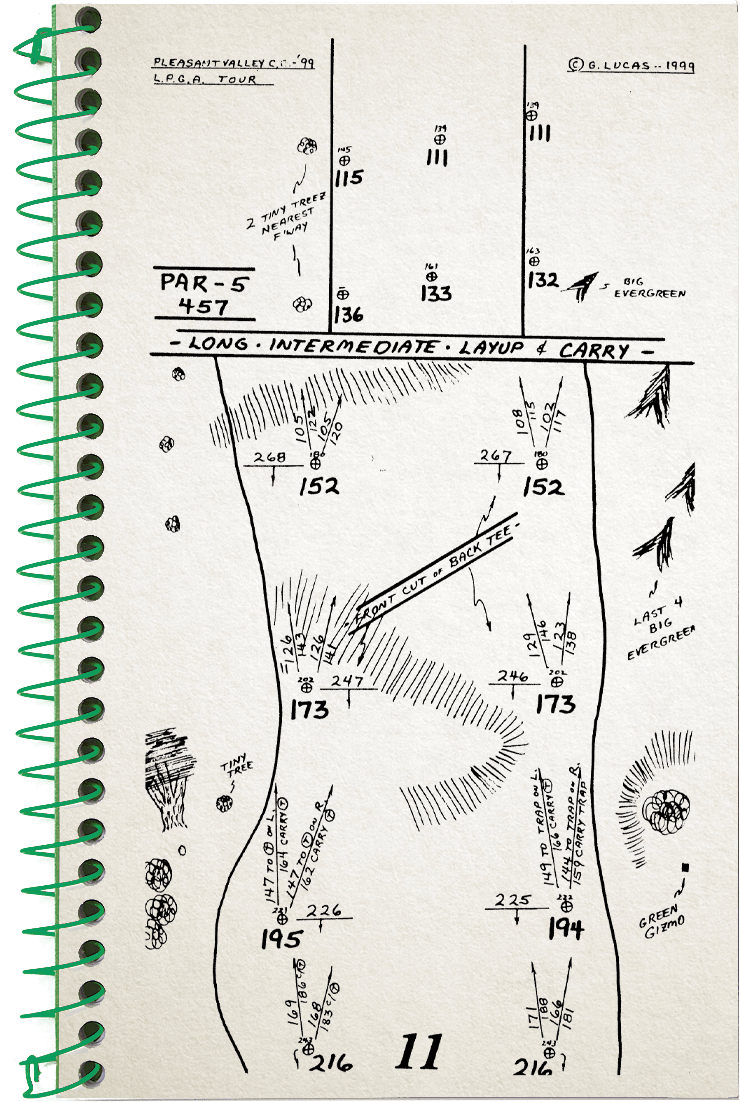 PLEASANT VALLEY C.C.-'99
L.P.G.A. TOUR
© G. LUCAS -- 1999
139
111
139
111
145
115
2 TINY TREEZ
NEAREST
F'WAY
163
132
161
133
136
BIG
EVERGREEN
PAR-5
457
- LONG · INTERMEDIATE · LAYUP & CARRY -
105
122
105
120
108
115
102
117
268
180
152
267
180
152
- FRONT CUT OF BACK TEE -
LAST 4
BIG
EVERGREEN
126
143
126
141
129
146
123
138
202
247
173
246
202
173
TINY
TREE
147 TO T ON L.
164 CARRY T
147 TO T ON R.
162 CARRY T
149 TO TRAP ON L.
166 CARRY T
144 TO TRAP ON R.
159 CARRY TRAP
226
195
225
194
GREEN
GIZMO
169
186 C/T
168
183 C/T
171
188
166
181
243
216
243
216
11